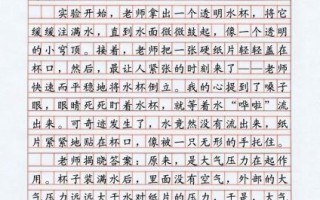 实验开始，老师拿出一个透明水杯，将它
缓缓注满水，直到水面微微鼓起，像一个透明
的小穹顶。接着，老师把一张硬纸片轻轻盖在
杯口，然后，最让人紧张的时刻来了——老师
快速而平稳地将水杯倒立。我的心提到了嗓子
眼，眼睛死死盯着水杯，就等着水“哗啦”流
出来。可奇迹发生了，水竟然没有流出来，纸
片紧紧贴在杯口，像被一只无形的手托住。
老师揭晓答案，原来，是大气压力在起作
用。杯子装满水后，里面没有空气，外部的大
气压力远远大于水对纸片的压力，于是，大气